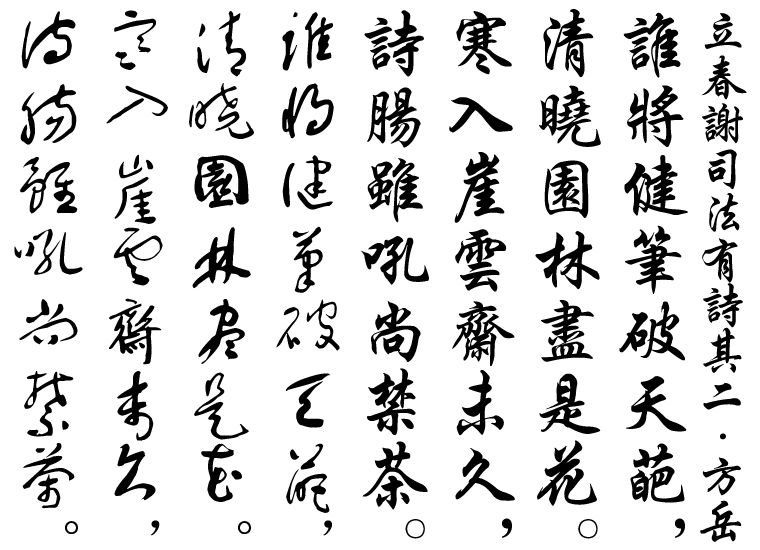 立春謝司法有詩其二·方岳
誰將健筆破天葩，
清曉園林盡是花。
寒入崖雲齋未久，
詩腸雖吼尚禁茶。
誰將健筆破天葩，
清曉園林盡是花。
寒入崖雲齋未久，
詩腸雖吼尚禁茶。